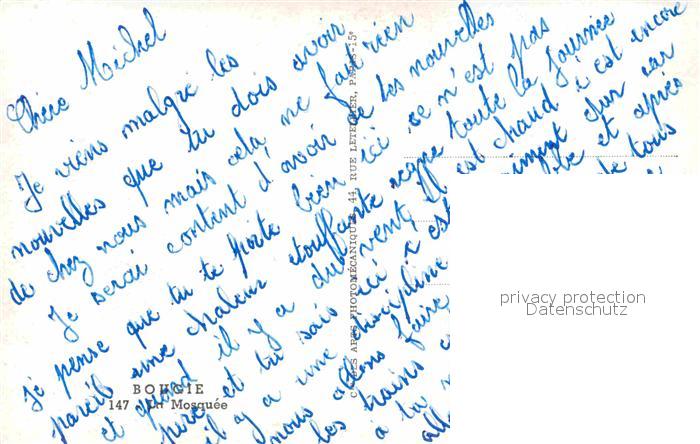 Chère Michel
Je viens malgré les
nouvelles que tu dois avoir
de chez nous mais cela ne fait rien
Je serai content d'avoir de tes nouvelles
Je pense que tu te porte bien ici se n'est pas
pareil une chaleur étouffante règne toute la journée
et quand il y a du vent, il est chaud c'est encore
pire et tu sais ici c'est
il y a une discipline
nous allons faire
les trains
à ta
all
et après
de tous
BOUGIE
147 - La Mosquée
CARTES ARTS PHOTOMÉCANIQUES, 44, RUE LETELLIER, PARIS-15e
privacy protection
Datenschutz